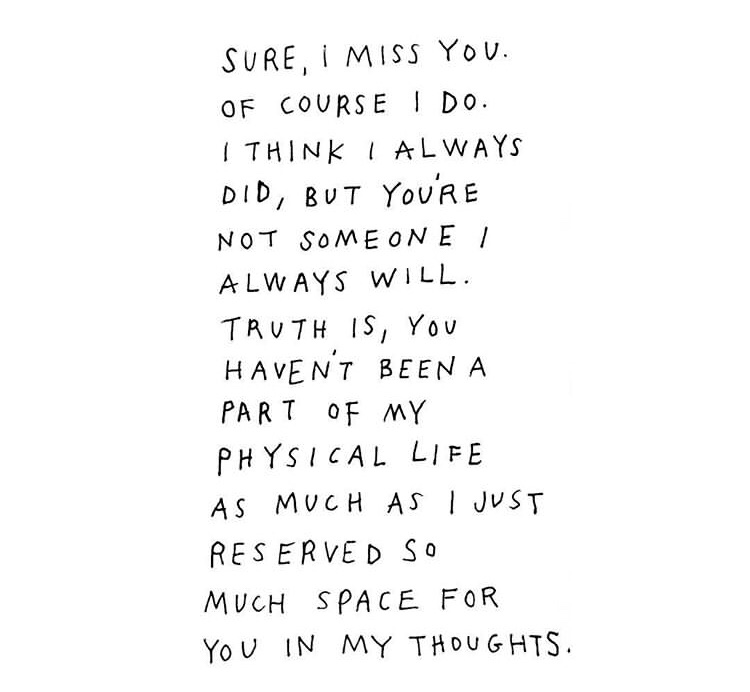 SURE, i MISS YOU.
OF COURSE I DO.
I THINK I ALWAYS
DID, BUT YOU'RE
NOT SOMEONE I
ALWAYS WILL.
TRUTH IS, YOU
HAVEN'T BEEN A
PART OF MY
PHYSICAL LIFE
AS MUCH AS I JUST
RESERVED SO
MUCH SPACE FOR
YOU IN MY THOUGHTS.